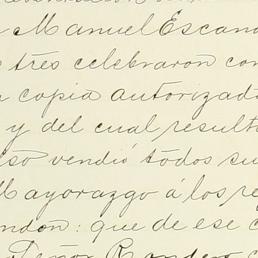 Manuel Escan
tres celebraron con
copia autorizada
y del cual result
so vendió todos su
Mayorazgo á los re
ndon: que de ese c
Señor Rondero